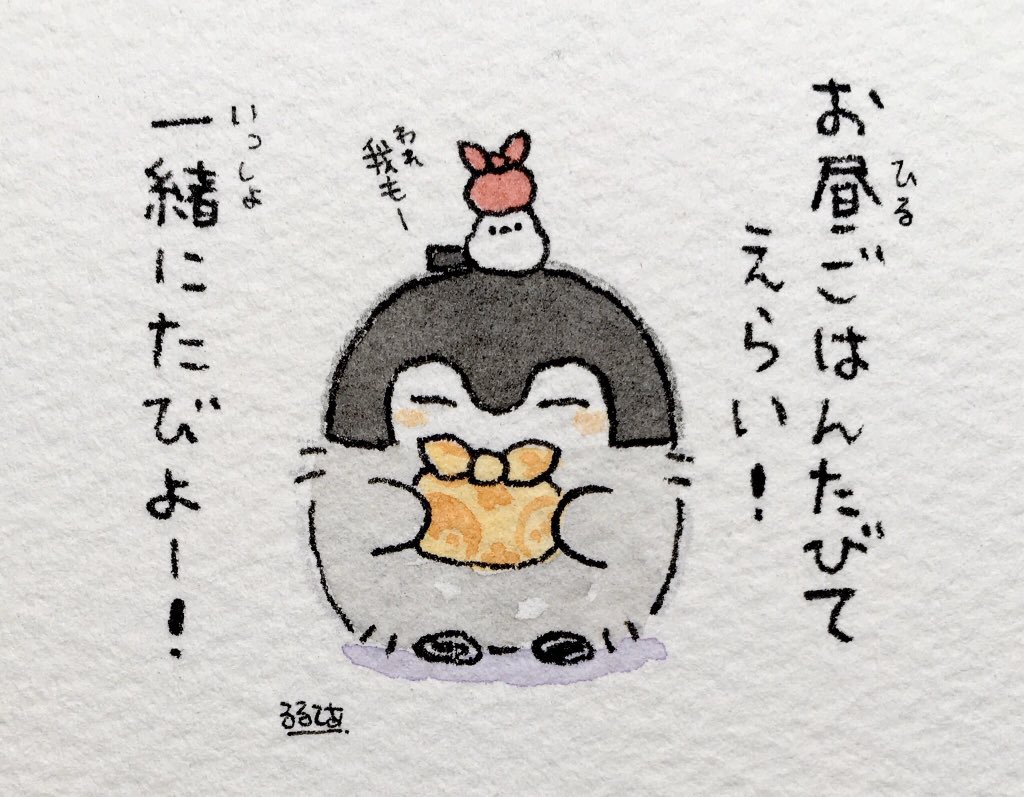 お昼ごはんたびて
ひる
えらい！
我もー
われ
一緒にたびよー！
いっしょ
るるてあ